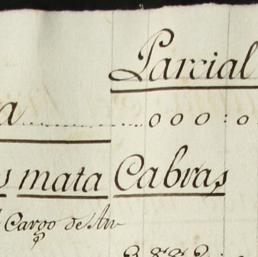 Parcial
a..................000:0
s mata Cabras
Cargo de An